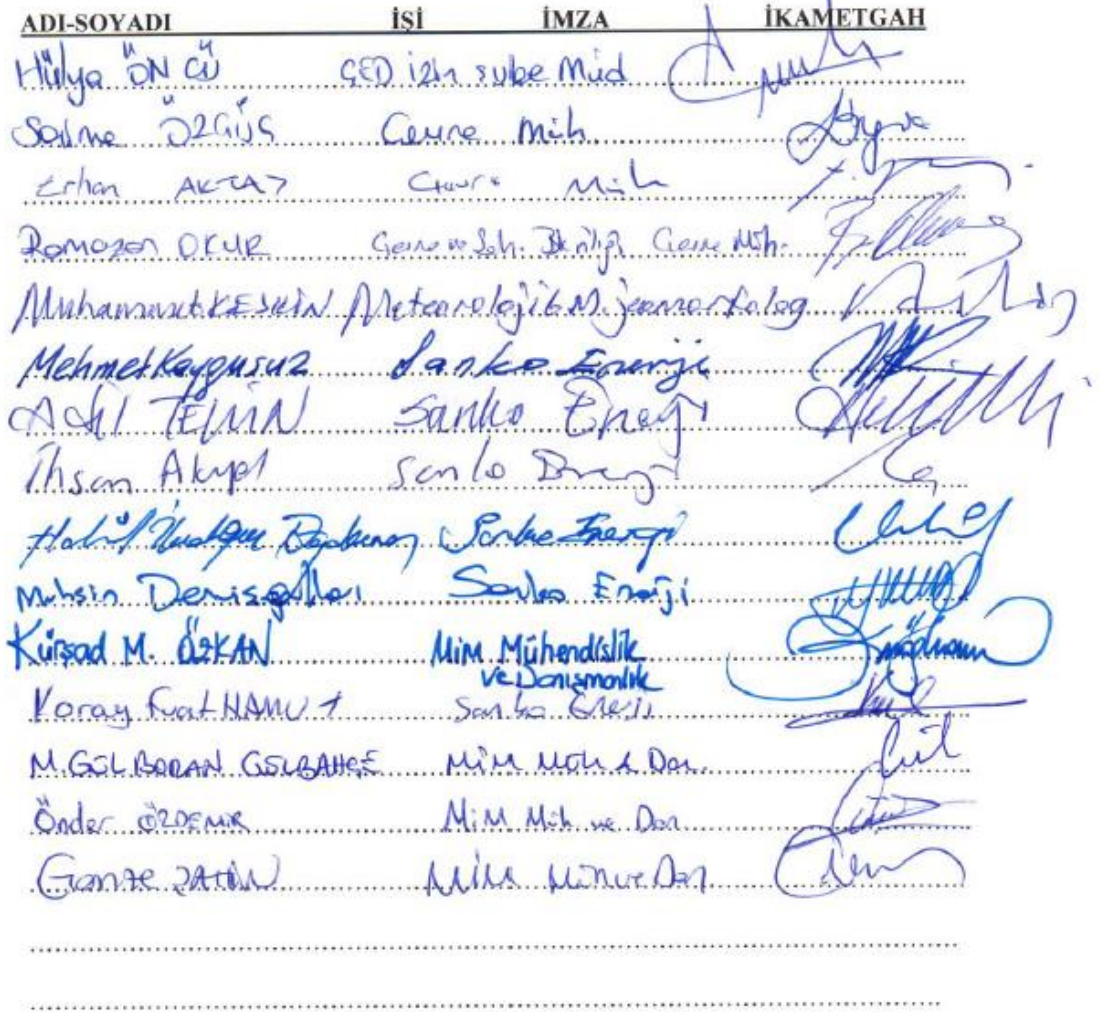 ADI-SOYADI İŞİ İMZA İKAMETGAH
Hülya ÖNCÜ ÇED izin şube Müd
ÖZGÜŞ Çevre Müh.
Erhan AKTAŞ Çevre Müh
Ramazan OKUR Çevre ve Şeh. Çevre Müh.
Muhammet KESKİN Meteoroloji 6.M. jeomorfolog
Mehmet Kaygusuz Sanko Enerji
Adil TEKİN Sanko Enerji
İhsan Akyol Sanko Enerji
Halil Sanko Enerji
Muhsin Sanko Enerji
Kürşad M. ÖZKAN Mim Mühendislik
ve Danışmanlık
Koray Fuat HAMUT Sanko Enerji
M. GÜLBORAN GÜLBAHÇE MİM Müh & Dan.
Önder ÖZDEMİR MİM Müh ve Dan
Gamze ŞAHİN MİM Müh ve Dan